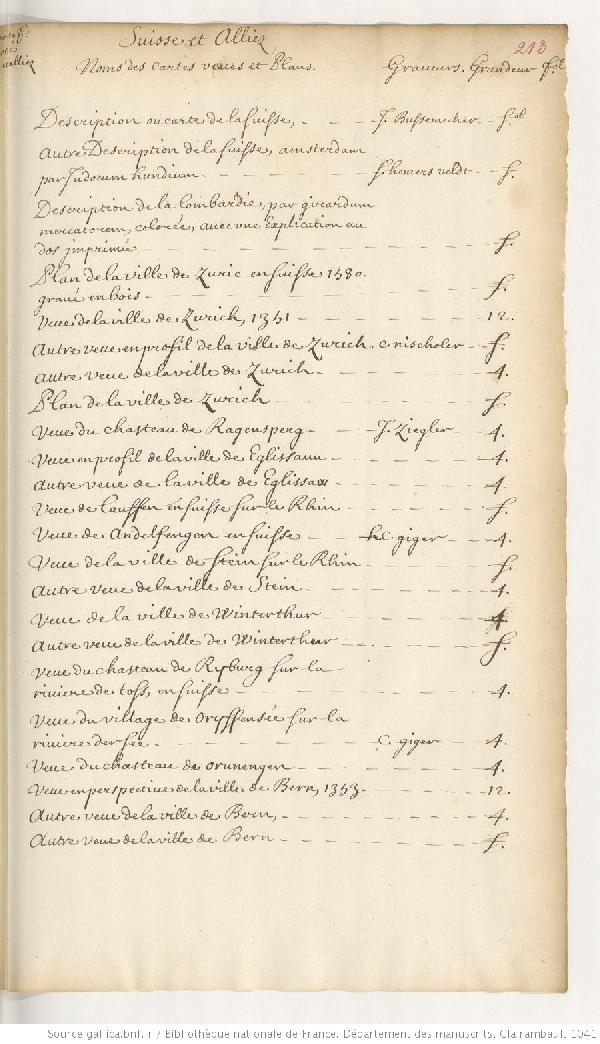 Suisse et Alliez
213
Noms des cartes veues et Plans. Graveurs. Grandeur
Description ou carte de la suisse, J. Bussemecher
autre Description de la suisse, amsterdam
par Judocum hundium f.
Description de la lombardie, par girardum
mercatorem, colorée, avec une Explication au
dos jmprimé f.
Plan de la ville de Zuric en suisse 1580.
gravé en bois. f.
Veue de la ville de Zurich, 1551 12.
Autre veue en profil de la ville de Zurich. f.
autre veue de la ville de Zurich. 4.
Plan de la ville de Zurich f.
Veue du chasteau de Ragensperg J. Ziegler 4.
Veue en profil de la ville de Eglissauu 4.
autre veue de la ville de Eglissau 4.
Veue de Lauffen en suisse sur le Rhin f.
Veue de Andelfengen en suisse giger 4.
Veue de la ville de Stein sur le Rhin f.
Autre veue de la ville de Stein 4.
Veue de la ville de Winterthur 4
Autre veue de la ville de Winterthur f.
Veue du chasteau de Kyburg sur la
riviere de toss, en suisse 4.
Veue du village de Gryffensée sur la
riviere c. giger 4.
Veue du chasteau de Grunengen 4.
Veue en perspective de la ville de Bern, 1553. 12.
Autre veue de la ville de Bern, 4.
Autre veue de la ville de Bern f.
Source gallica.bnf.fr / Bibliothèque nationale de France. Département des manuscrits. Clairambault 1041